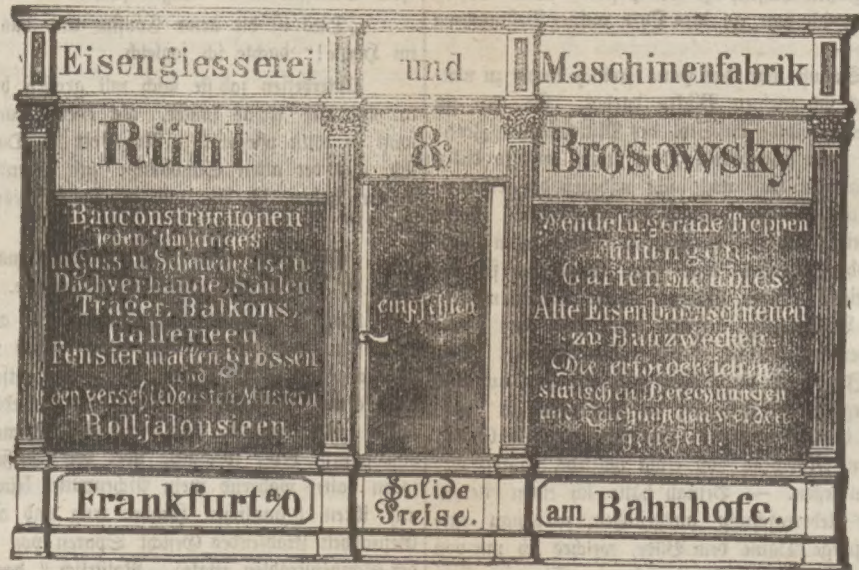 Eisengiesserei und Maschinenfabrik
Rühl & Brosowsky
Bauconstructionen
jeden Umfanges
in Guss u. Schmiedeeisen.
Dachverbände, Säulen
Träger, Balkons,
Gallerieen
Fenster in allen Grössen
und
den verschiedensten Mustern
Rolljalousieen.
empfehlen
Wendel u. gerade Treppen
Füllungen
Gartenmeubles.
Alte Eisenbahnschienen
zu Bauzwecken.
Die erforderlichen
statischen Berechnungen
und Zeichnungen werden
geliefert.
Frankfurt a/O
Solide
Preise.
am Bahnhofe.